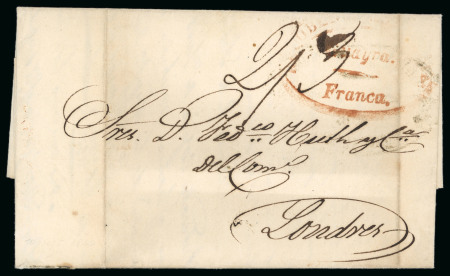 Guayra.
2/3
Franca.
Sres. D. Fedco. Huth y Cia.
del Comº.
Londres